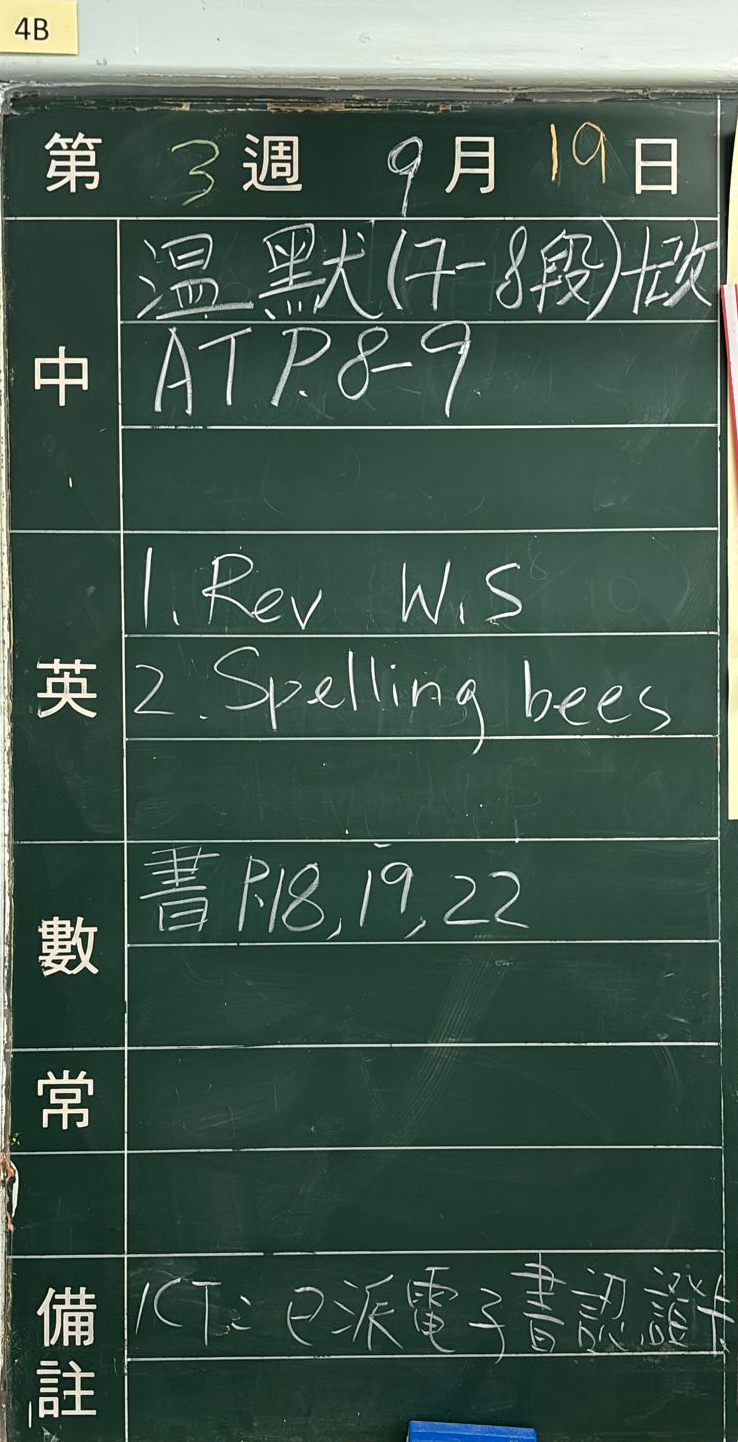 4B
第 3 週 9 月 19 日
中
温 默 (7-8段)+改
AT P.8-9
英
1. Rev W.S
2. Spelling bees
數
書 P.18, 19, 22
常
備註
ICT: 已派電子書認證卡